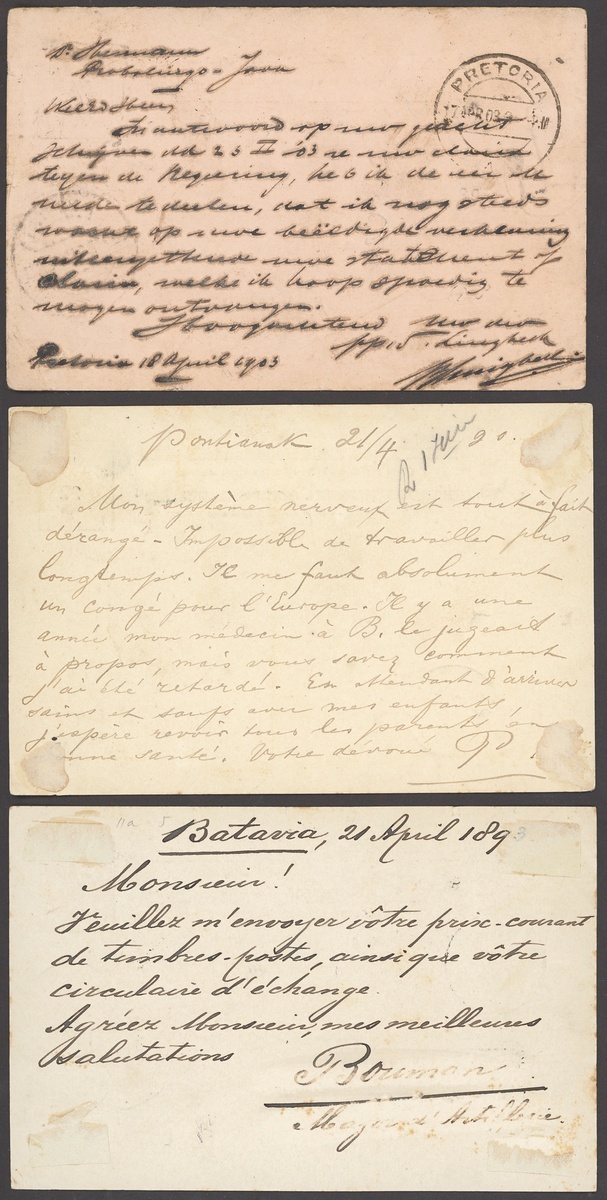 Dr. Hermann
Probolingo - Java
PRETORIA
Weled Heer
In antwoord op uw geacht
schrijven dd 25 II '03 re uw claim
tegen de Regering, heb ik de eer U
mede te deelen, dat ik nog steeds
wacht op uwe beëedigde verklaring
uiteenzettende uwe statement of
claim, welke ik hoop spoedig te
mogen ontvangen.
Hoogachtend Uw dw
pp
Pretoria 18 April 1903
Pontianak 21/4 90.
R 1 Juin
Mon système nerveux est tout à fait
dérangé - Impossible de travailler plus
longtemps. Il me faut absolument
un congé pour l'Europe. Il y a une
année mon médecin à B. le jugeait
à propos, mais vous savez comment
j'ai été retardé. En attendant d'arriver
sains et saufs avec mes enfants
j'espère revoir tous les parents en
onne santé. Votre dévoué P.
11a 5
Batavia, 21 April 1893
Monsieur!
Veuillez m'envoyer vôtre prix-courant
de timbres-postes, ainsi que vôtre
circulaire d'échange.
Agréez Monsieur, mes meilleures
salutations
Bouman
Major d'Artillerie.